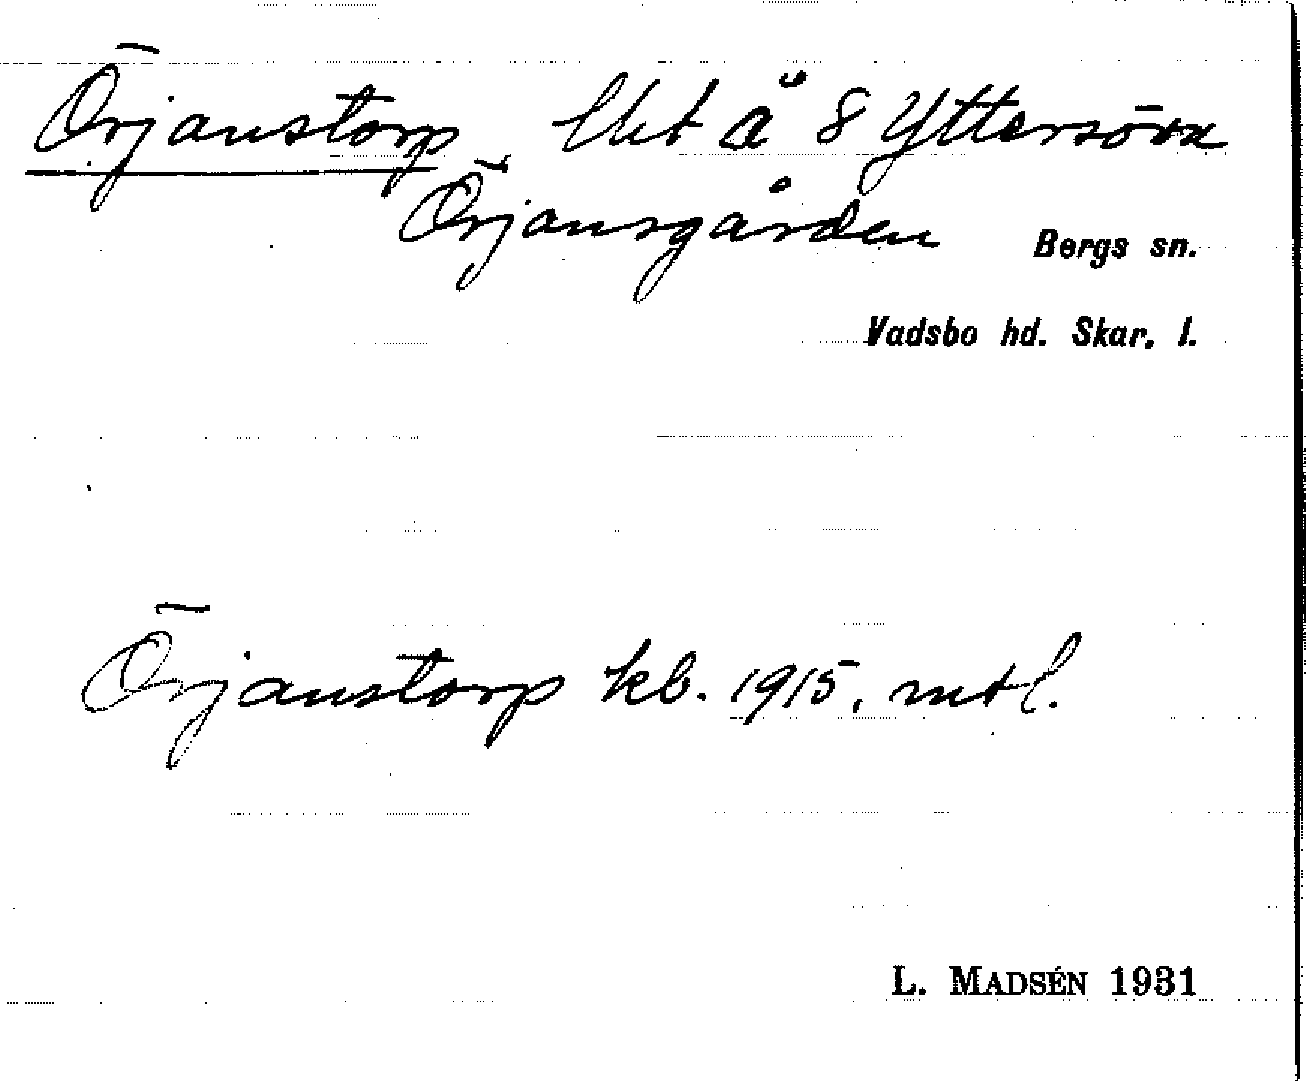 Örjanstorp lht å 8 Yttersörx
Örjansgården
Bergs sn.
Vadsbo hd. Skar. l.
Örjanstorp kb. 1915, mtl.
L. MADSÉN 1931